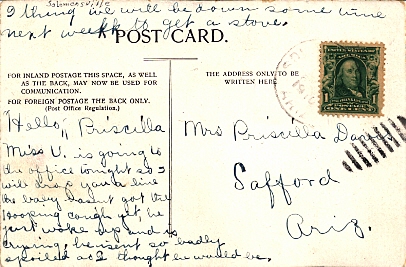 Solomonsville
I thing we will be down some time
next weekk to get a stove.
POST CARD.
FOR INLAND POSTAGE THIS SPACE, AS WELL
AS THE BACK, MAY NOW BE USED FOR
COMMUNICATION.
FOR FOREIGN POSTAGE THE BACK ONLY.
(Post Office Regulation.)
THE ADDRESS ONLY TO BE
WRITTEN HERE.
"Hello," Priscilla
Miss V. is going to
the office tonight so I
will drop you a line
the baby hasn't got the
hooping cough yet, he
just woke up and is
crying, he isent so badly
spoiled as I thought he would be.
Mrs Priscilla Davis
Safford
Ariz.